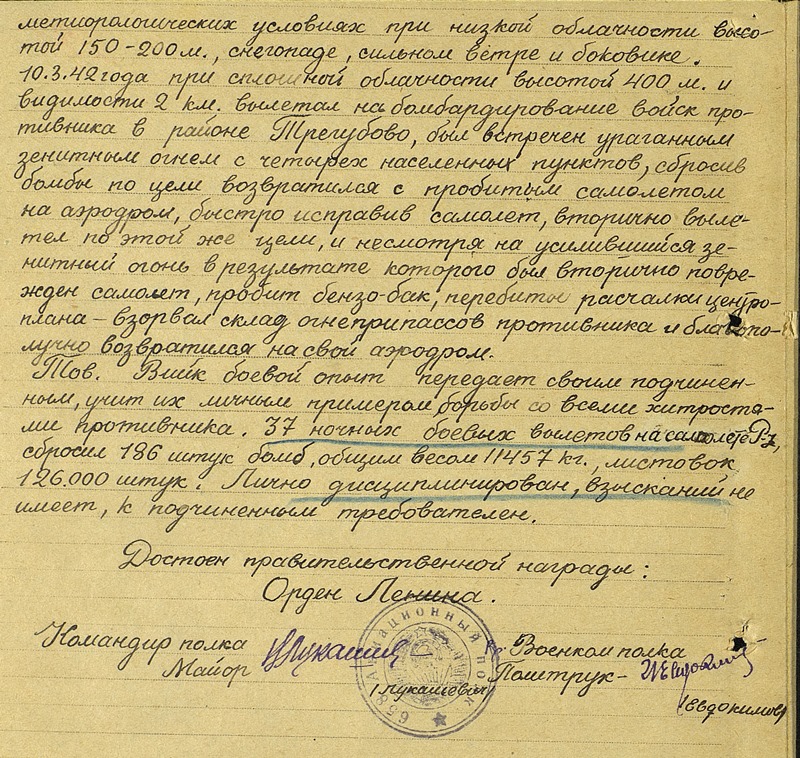 метиорологических условиях при низкой облачности высо-
той 150-200 м., снегопаде, сильном ветре и боковике.
10.3.42 года при сплошной облачности высотой 400 м. и
видимости 2 км. вылетал на бомбардирование войск про-
тивника в районе Трегубово, был встречен ураганным
зенитным огнем с четырех населенных пунктов, сбросив
бомбы по цели возвратился с пробитым самолетом
на аэродром, быстро исправив самолет, вторично выле-
тел по этой же цели, и несмотря на усилившийся зе-
нитный огонь в результате которого был вторично повре-
жден самолет, пробит бензо-бак, перебиты расчалки центро-
плана - взорвал склад огнеприпассов противника и благопо-
лучно возвратился на свой аэродром.
Тов. Вийк боевой опыт передает своим подчинен-
ным, учит их личным примером борьбы со всеми хитростя-
ми противника. 37 ночных боевых вылетов на самолете Р-Z,
сбросил 186 штук бомб, общим весом 11457 кг., листовок
126.000 штук. Лично дисциплинирован, взысканий не
имеет, к подчиненным требователен.
Достоен правительственной награды:
Орден Ленина.
Командир полка Военком полка
Майор Политрук-
(Лукашевич)
(Евдокимов)
658 Авиационный полк